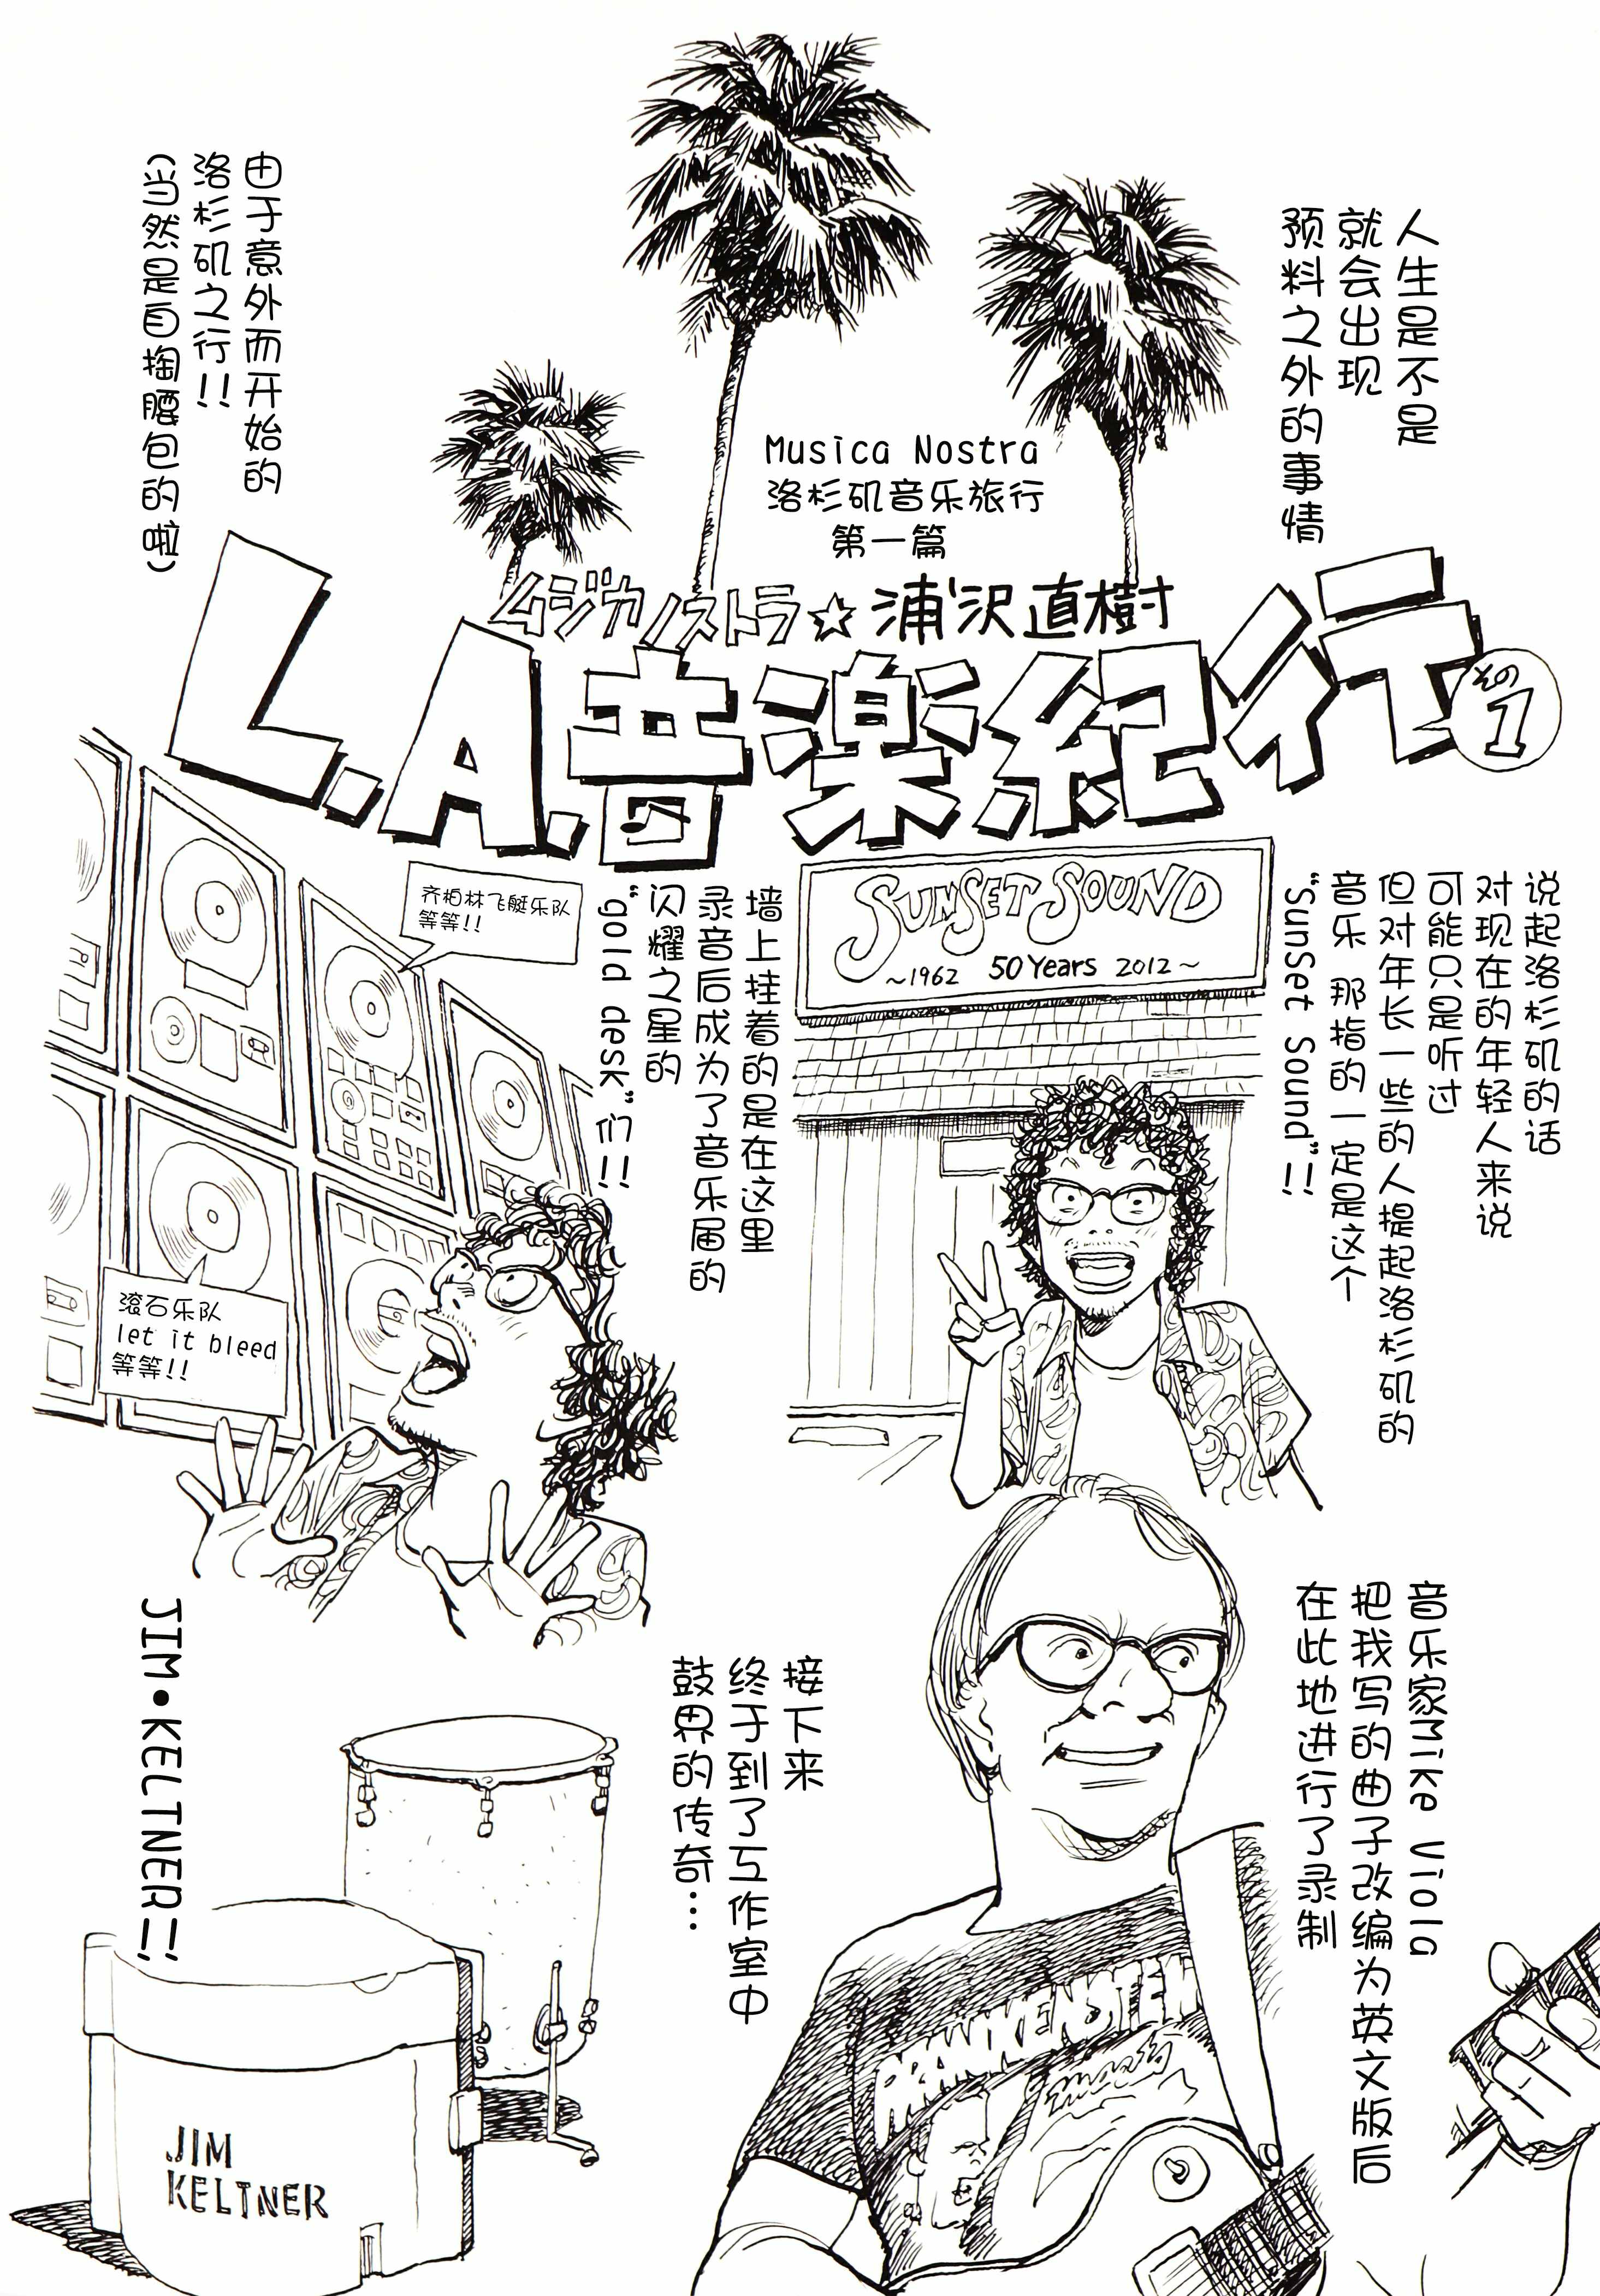 人生是不是
就会出现
预料之外的事情
由于意外而开始的
洛杉矶之行!!
(当然是自掏腰包的啦)
Musica Nostra
洛杉矶音乐旅行
第一篇
ムジカノストラ☆浦沢直樹
L.A.音楽紀行
その
1
说起洛杉矶的话
对现在的年轻人来说
可能只是听过
但对年长一些的人提起洛杉矶的
音乐 那指的一定是这个
"Sunset Sound"!!
SUNSET SOUND
~1962 50 Years 2012~
墙上挂着的是在这里
录音后成为了音乐届的
闪耀之星的
"gold desk"们!!
齐柏林飞艇乐队
等等!!
滚石乐队
let it bleed
等等!!
音乐家Mike Viola
把我写的曲子改编为英文版后
在此地进行了录制
FRANKENSTEIN
接下来
终于到了工作室中
鼓界的传奇…
JIM·KELTNER!!
JIM
KELTNER